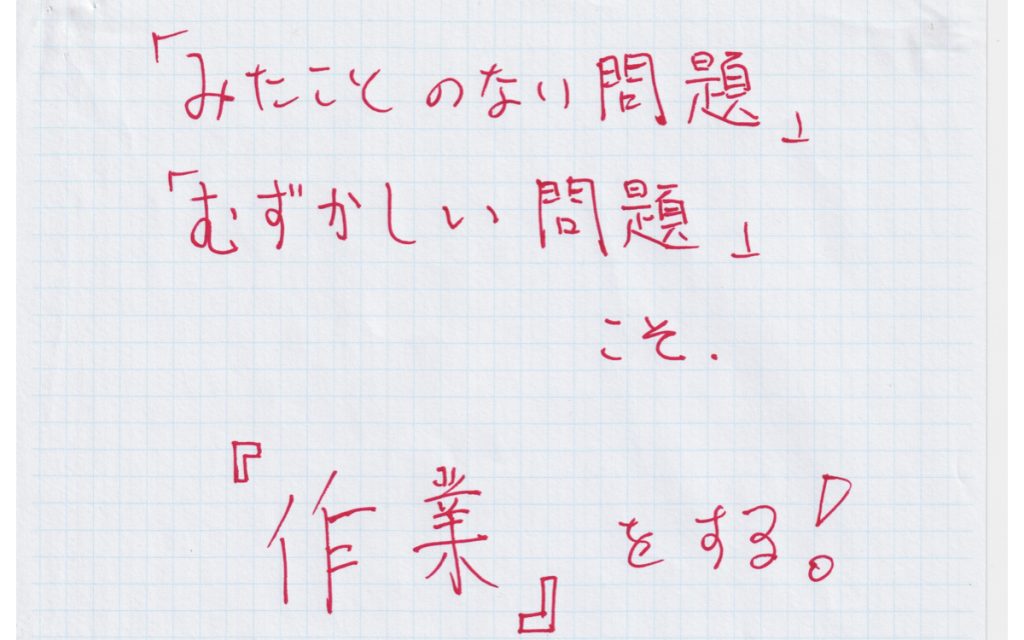 「みたことのない問題」
「むずかしい問題」
こそ.
『作業』をする!